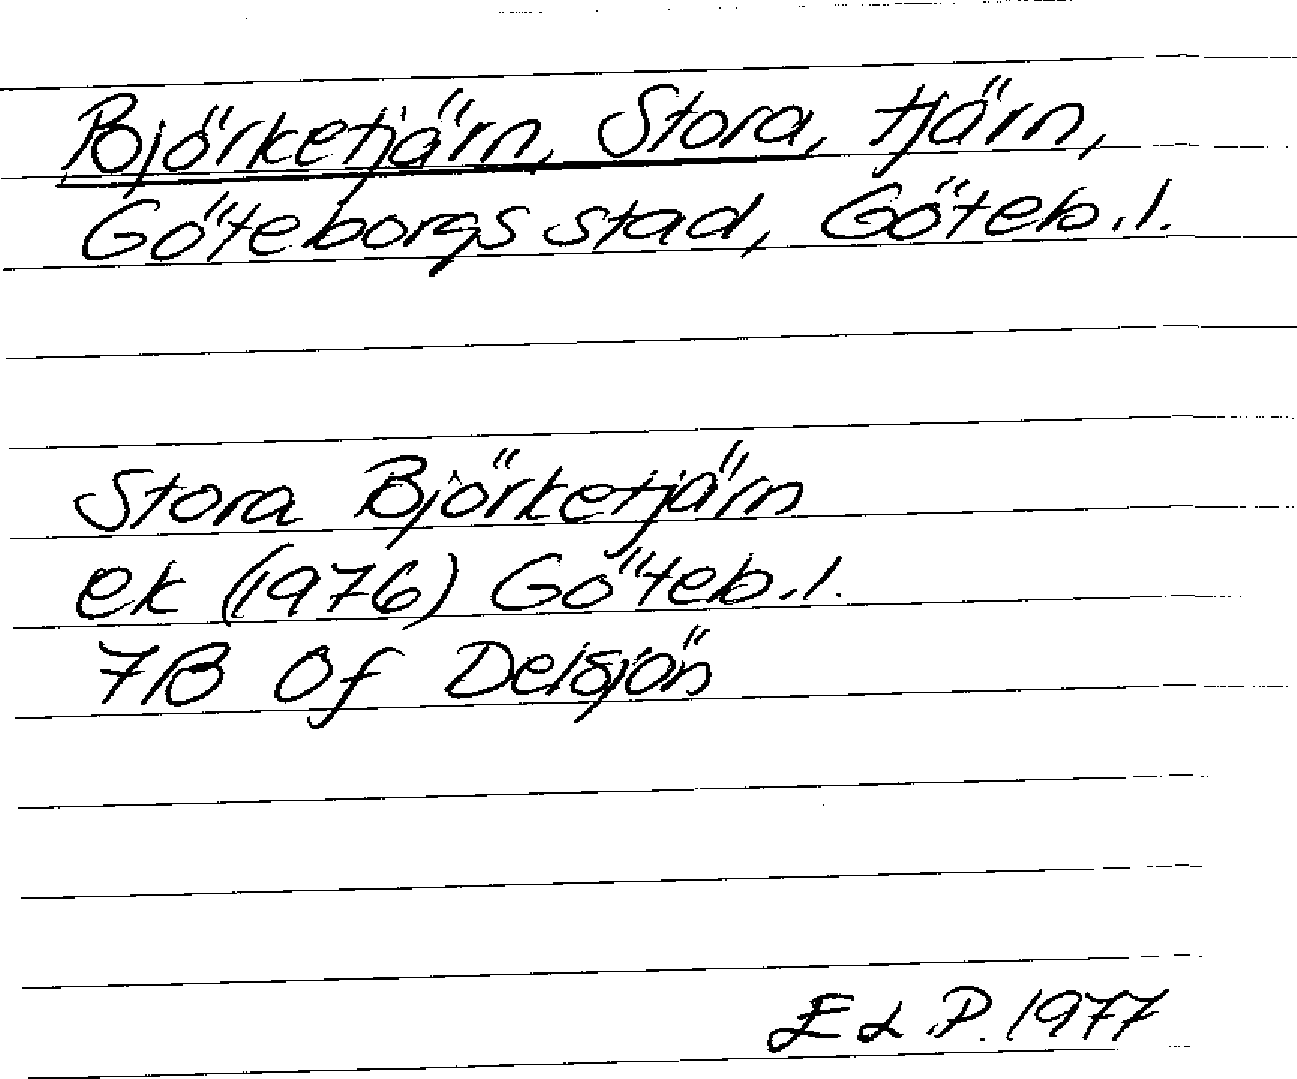 Björketjärn, Stora, tjärn,
Göteborgs stad, Göteb.l.
Stora Björketjärn
ek (1976) Göteb.l.
7B Öf Delsjön
E & P. 1977